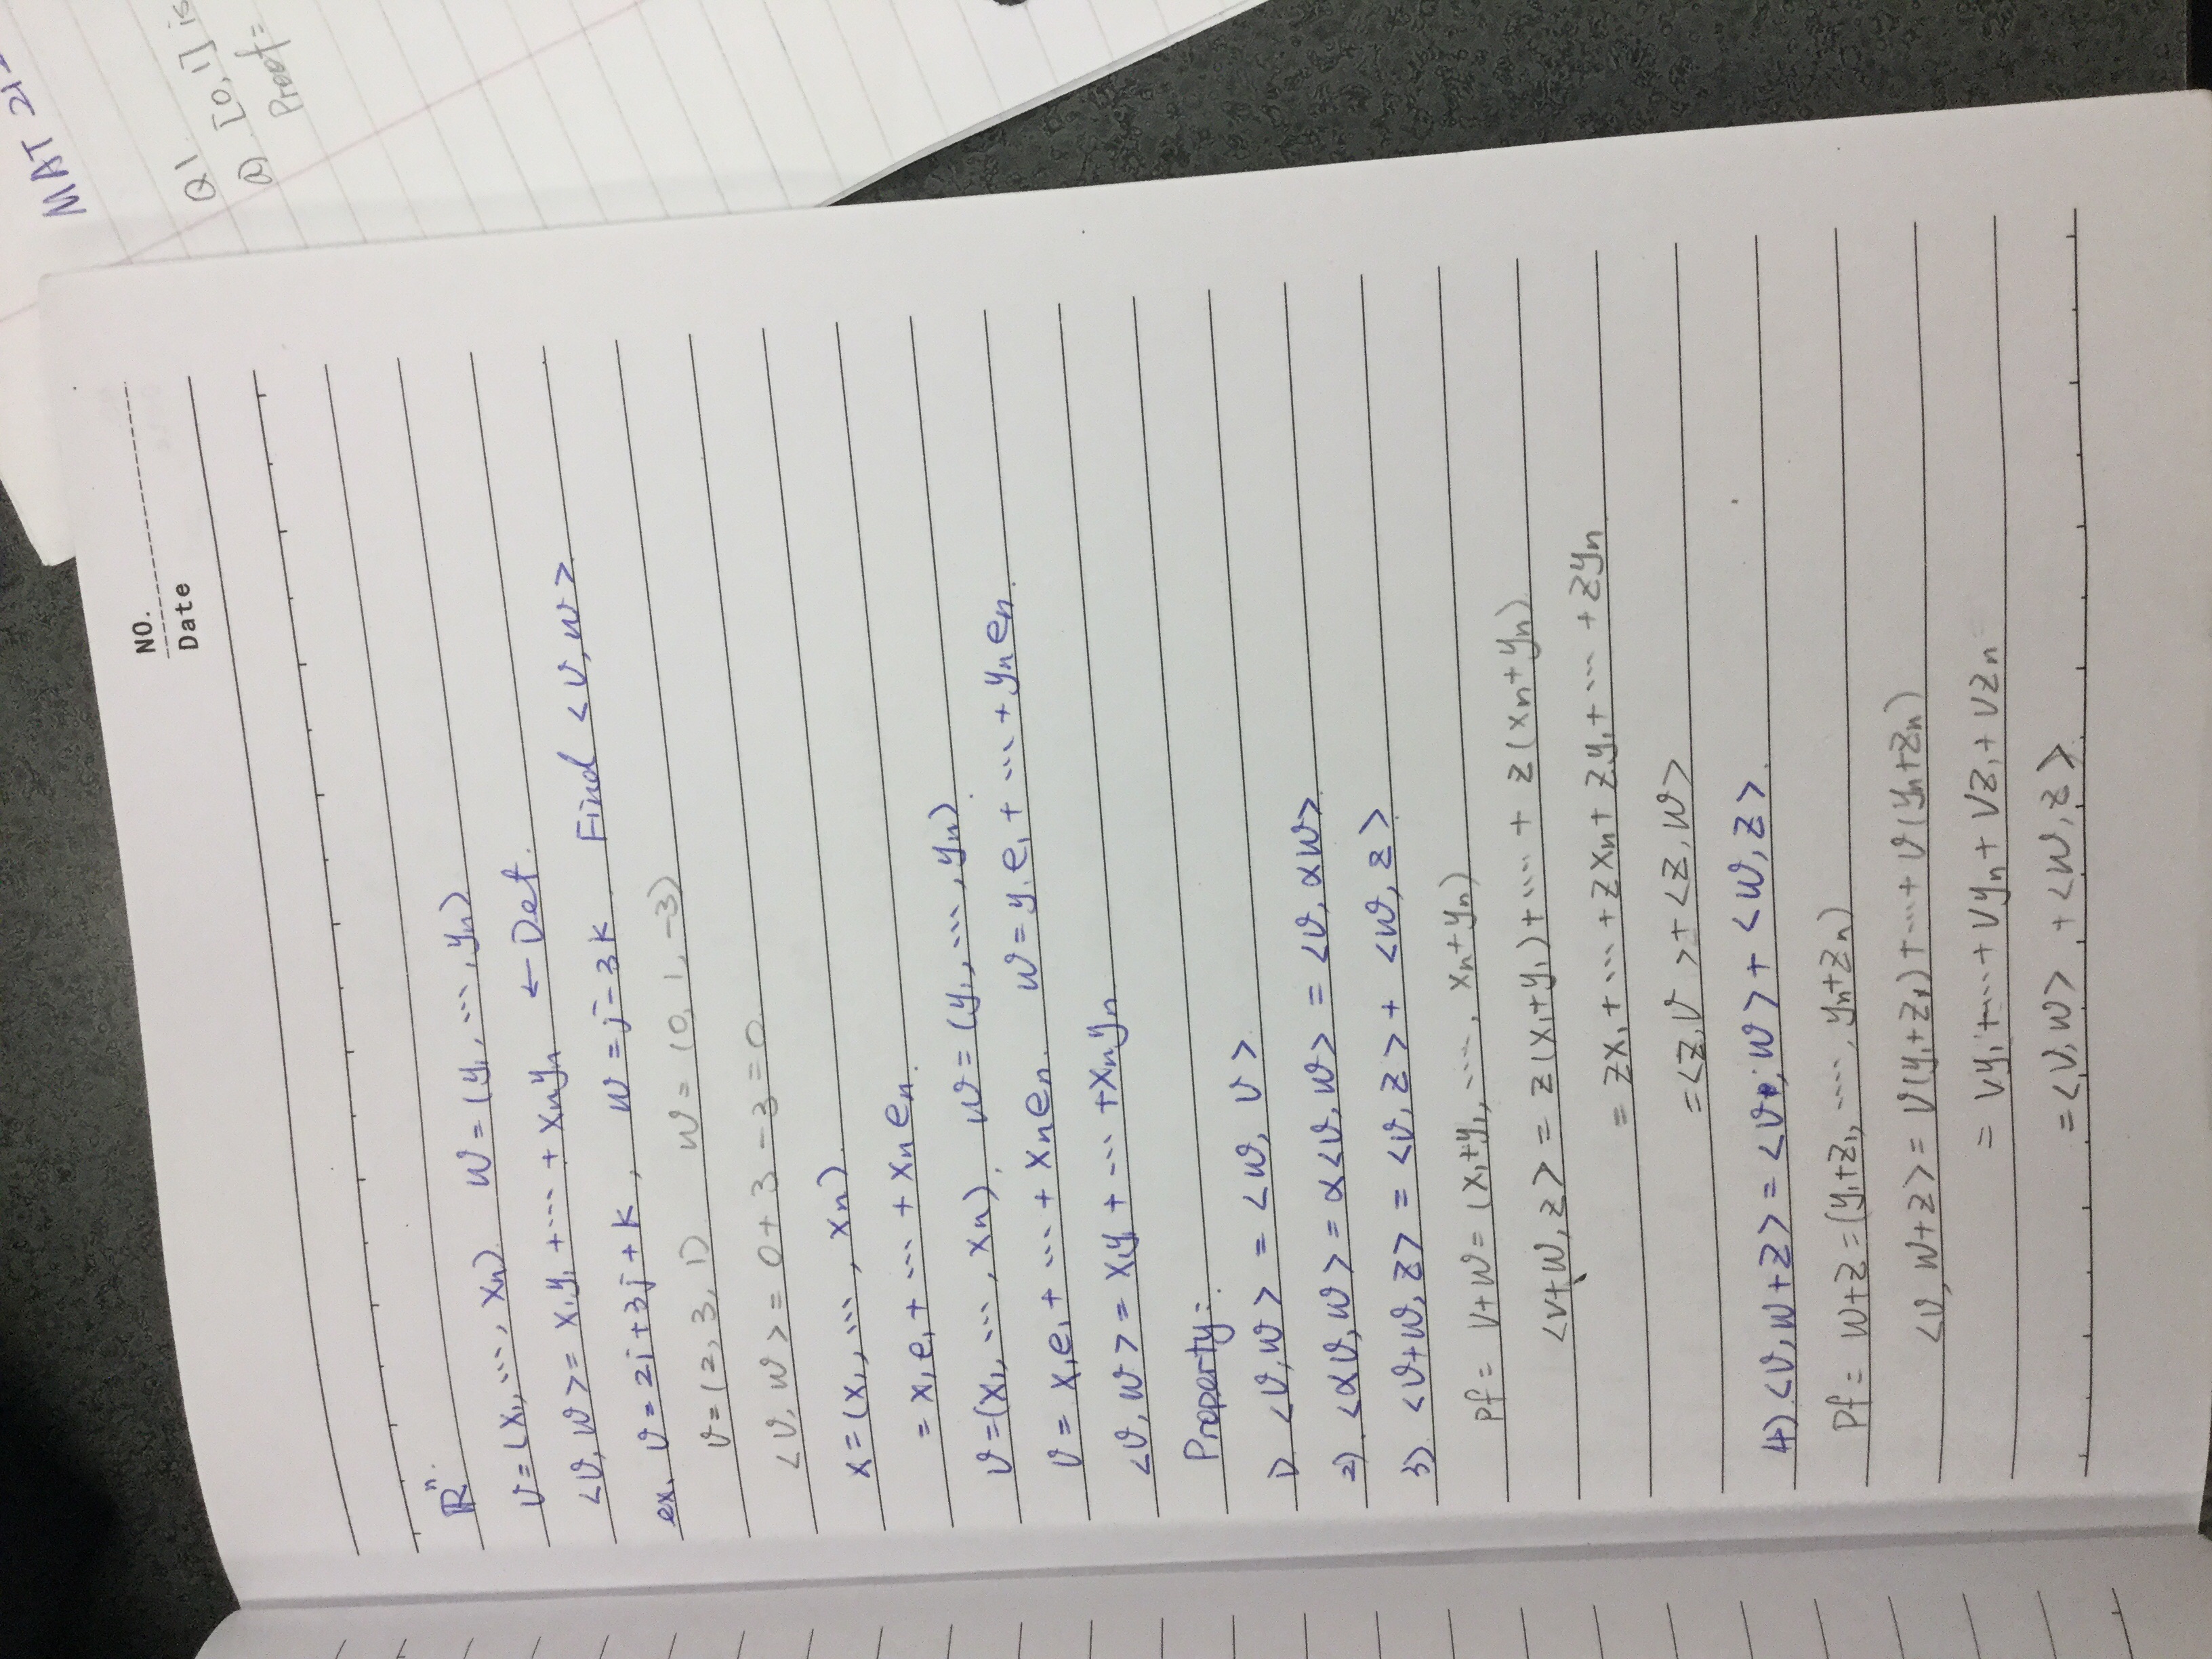 MAT 21
Q1.
a) [0,1] is
Proof=
NO.
Date
ℝⁿ.
v=(x₁,⋯,xₙ) w=(y₁,⋯,yₙ)
<v,w>=x₁y₁+⋯+xₙyₙ ← Def.
ex. v=2i+3j+k, w=j-3k Find <v,w>
v=(2,3,1) w=(0,1,-3)
<v,w>=0+3-3=0
x=(x₁,⋯,xₙ)
=x₁e₁+⋯+xₙeₙ.
v=(x₁,⋯,xₙ), w=(y₁,⋯,yₙ).
v=x₁e₁+⋯+xₙeₙ. w=y₁e₁+⋯+yₙeₙ.
<v,w>=x₁y₁+⋯+xₙyₙ
Property:
1) <v,w>=<w,v>
2) <αv,w>=α<v,w>=<v,αw>
3) <v+w,z>=<v,z>+<w,z>
Pf= v+w=(x₁+y₁,⋯,xₙ+yₙ)
<v+w,z>=z(x₁+y₁)+⋯+z(xₙ+yₙ)
=zx₁+⋯+zxₙ+zy₁+⋯+zyₙ
=<z,v>+<z,w>
4) <v,w+z>=<v,w>+<w,z>.
Pf= w+z=(y₁+z₁,⋯,yₙ+zₙ)
<v,w+z>=v(y₁+z₁)+⋯+v(yₙ+zₙ)
=vy₁+⋯+vyₙ+vz₁+vzₙ
=<v,w>+<w,z>